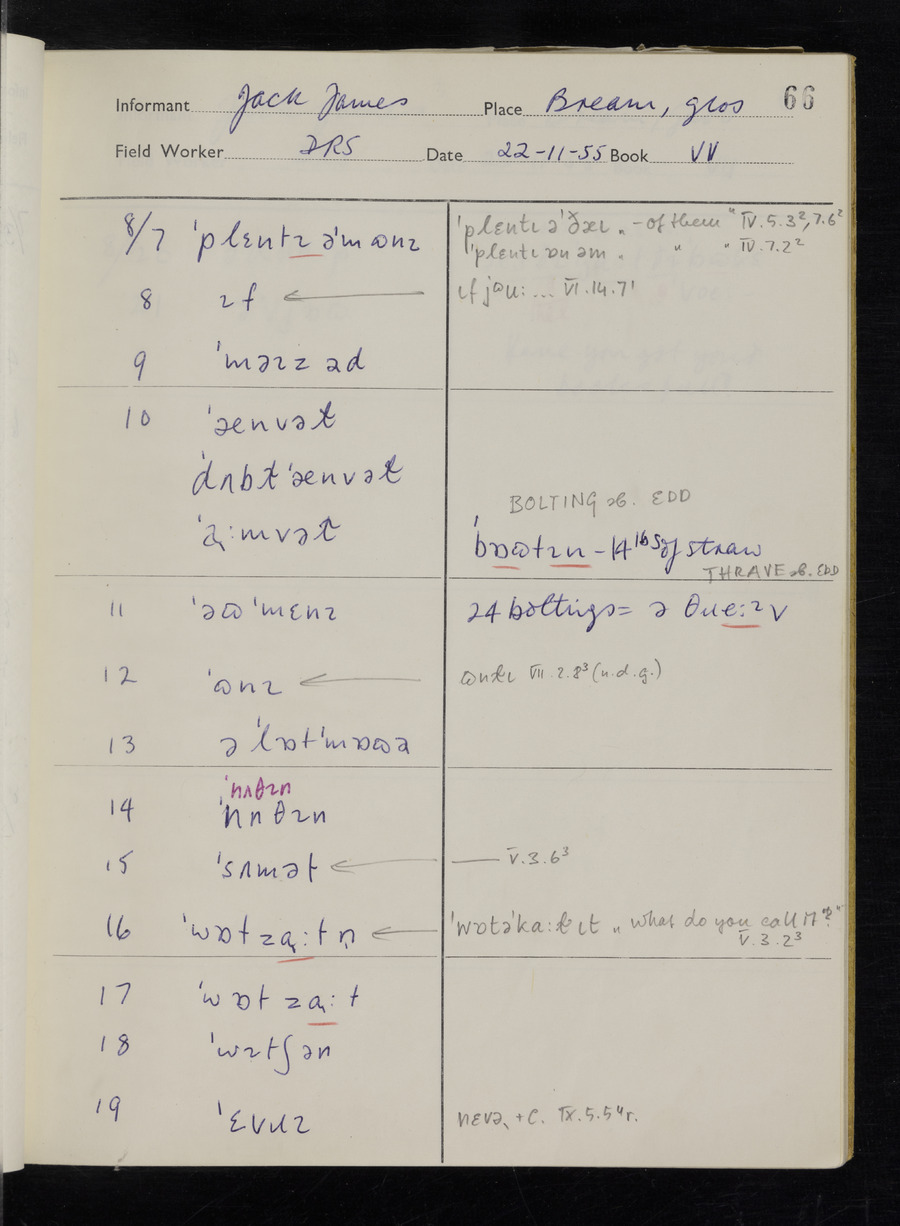 66
Informant Jack James Place Bream, glos
Field Worker JRS Date 22-11-55 Book VII
8/7 ˈplɛntɪ əˈm ɷnɪ
ˈplɛntɪ əˈðæɪ „ - of them " IV.5.3², 7.6²
ˈplɛntɪ ɒn əm „ " " IV.7.2²
8 ɪf
ɪf jəu: ... VI.14.7¹
9 ˈməɪz əd
10 ˈəenvət
ˈdʌbt ˈəenvət
BOLTING sb. EDD
ˈɑ̨:mvət
ˈbɒɷtɪn - 14 lbs of straw
THRAVE sb. EDD
11 ˈəɷˈmɛnɪ
24 boltings = ə θɹe:ɪv
12 ˈɷnɪ
VII.2.8³ (n.d.g.)
13 əˈlɒtˈmɒɷə
ˈnʌθɪn
14 ˈnʌθɪn
15 ˈsʌmət
V.3.6³
16 ˈwɒt zɑ̨:t n̩
ˈwɒtəˈka:ɫ ɪt „ what do you call it?"
V.3.2³
17 ˈwɒt zɑ̨:t
18 ˈwɪtʃ ən
19 ˈɛvɹɪ
nɛvə̨ +C. IX.5.5⁴ r.